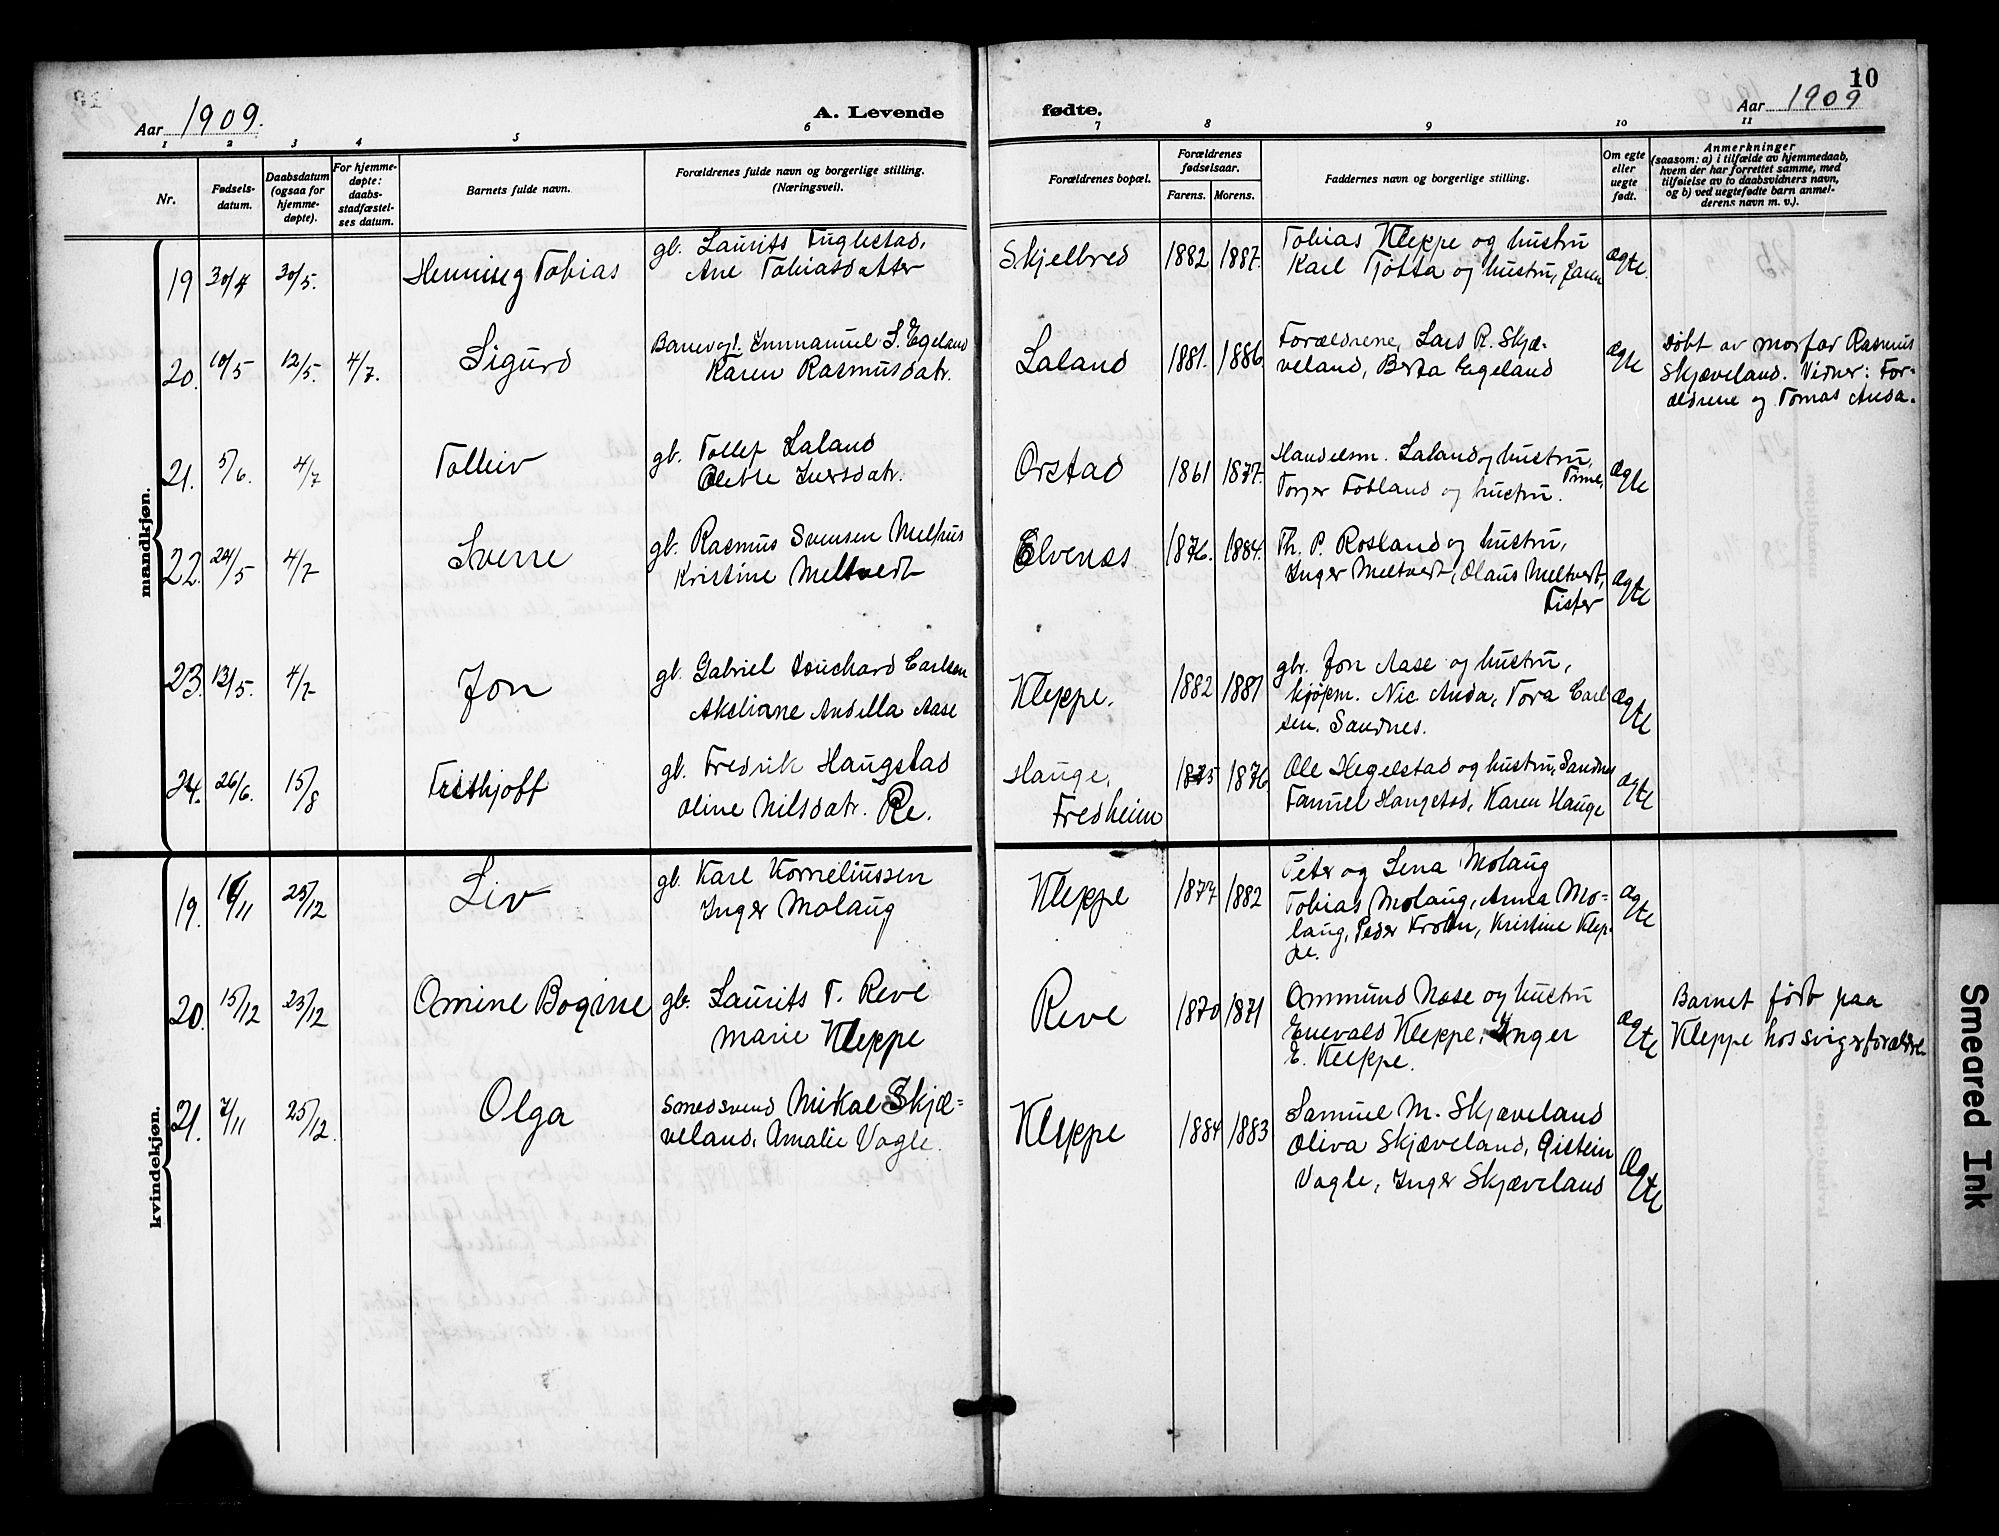 10
Aar 1909. A. Levende fødte. Aar 1909
1 2 3 4 5 6 7 8 9 10 11
Nr.
Fødsels-
datum.
Daabsdatum
(ogsaa for
hjemme-
døpte).
For hjemme-
døpte:
daabs-
stadfæstel-
ses datum.
Barnets fulde navn.
Forældrenes fulde navn og borgerlige stilling.
(Næringsvei).
Forældrenes bopæl.
Forældrenes
fødselsaar.
Farens. Morens.
Faddernes navn og borgerlige stilling.
Om egte
eller
uegte
født.
Anmerkninger
(saasom: a) i tilfælde av hjemmedaab,
hvem der har forrettet samme, med
tilføielse av to daabsvidners navn,
og b) ved uegtefødte barn anmel-
derens navn m. v.).
mandkjøn.
19 30/4 30/5. Henning Tobias
gb. Laurits Fuglestad,
Ane Tobiasdatter
Skjelbred 1882 1887.
Tobias Kleppe og hustru
Karl Tjøtta og hustru,
ægte.
20. 10/5 12/5. 4/7. Sigurd
Emmanuel S. Egeland
Karen Rasmusdatr.
Laland 1881. 1886
Forældrene, Lars R. Skjæ-
veland, Berta Egeland
ægte
døbt av morfar Rasmus
Skjæveland. Vidner: For-
ældrene og Tomas Anda.
21. 5/6. 4/7 Tolleiv
gb. Tollef Laland
Olette Iversdatr.
Orstad 1861 1877.
Handelsm. Laland og hustru,
Torger Fotland og hustru. Time,
ægte
22. 24/5 4/7 Sverre
gb. Rasmus Svensen Melhus
Kristine Meltvedt
Elvenes 1876. 1884.
Th. P. Rosland og hustru,
Inger Meltvedt, Olaus Meltvedt,
Fister
ægte
23. 13/5. 4/7 Jon
gb. Gabriel Carlsen
Akseliane Andella Aase
Kleppe. 1882 1881
gbr. Jon Aase og hustru,
kjøpm. Nic Anda, Tora Carl
sen. Sandnes.
ægte
24. 26/6. 15/8 Fridthjoff
gb. Fredrik Haugstad
Oline Nilsdatr. Re.
Hauge,
Fredheim
1875 1876
Ole Hegelstad og hustru, Sandnes
Samuel Haugstad, Karen Hauge
ægte
kvindekjøn.
19. /11 25/12 Liv
gb. Karl Korneliussen
Inger Molaug
Kleppe 1877 1882
Peter og Lena Molaug
Tobias Molaug, Anna Mo-
laug, Peder Krohn, Kristine Klep-
pe.
ægte
20. 15/12 23/12 Omine Bogine
gb. Laurits T. Reve
Marie Kleppe
Reve 1870 1871
Ommund Næse og hustru
Enevald Kleppe, Inger
E. Kleppe.
ægte
Barnet født paa
Kleppe hos svigerforældre
21. 7/11 25/12. Olga
Smedsvend Mikael Skjæ-
veland, Amalie Vagle.
Kleppe 1884 1883
Samuel M. Skjæveland
Oliva Skjæveland, Øistein
Vagle, Inger Skjæveland
Ægte
Smeared Ink